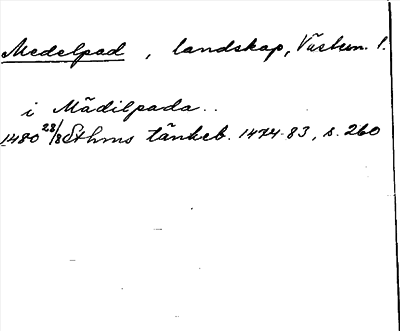 Medelpad, landskap, Västern. l.
i Mädilpada..
1480 28/8 Sthms tänkeb. 1474-83, s. 260